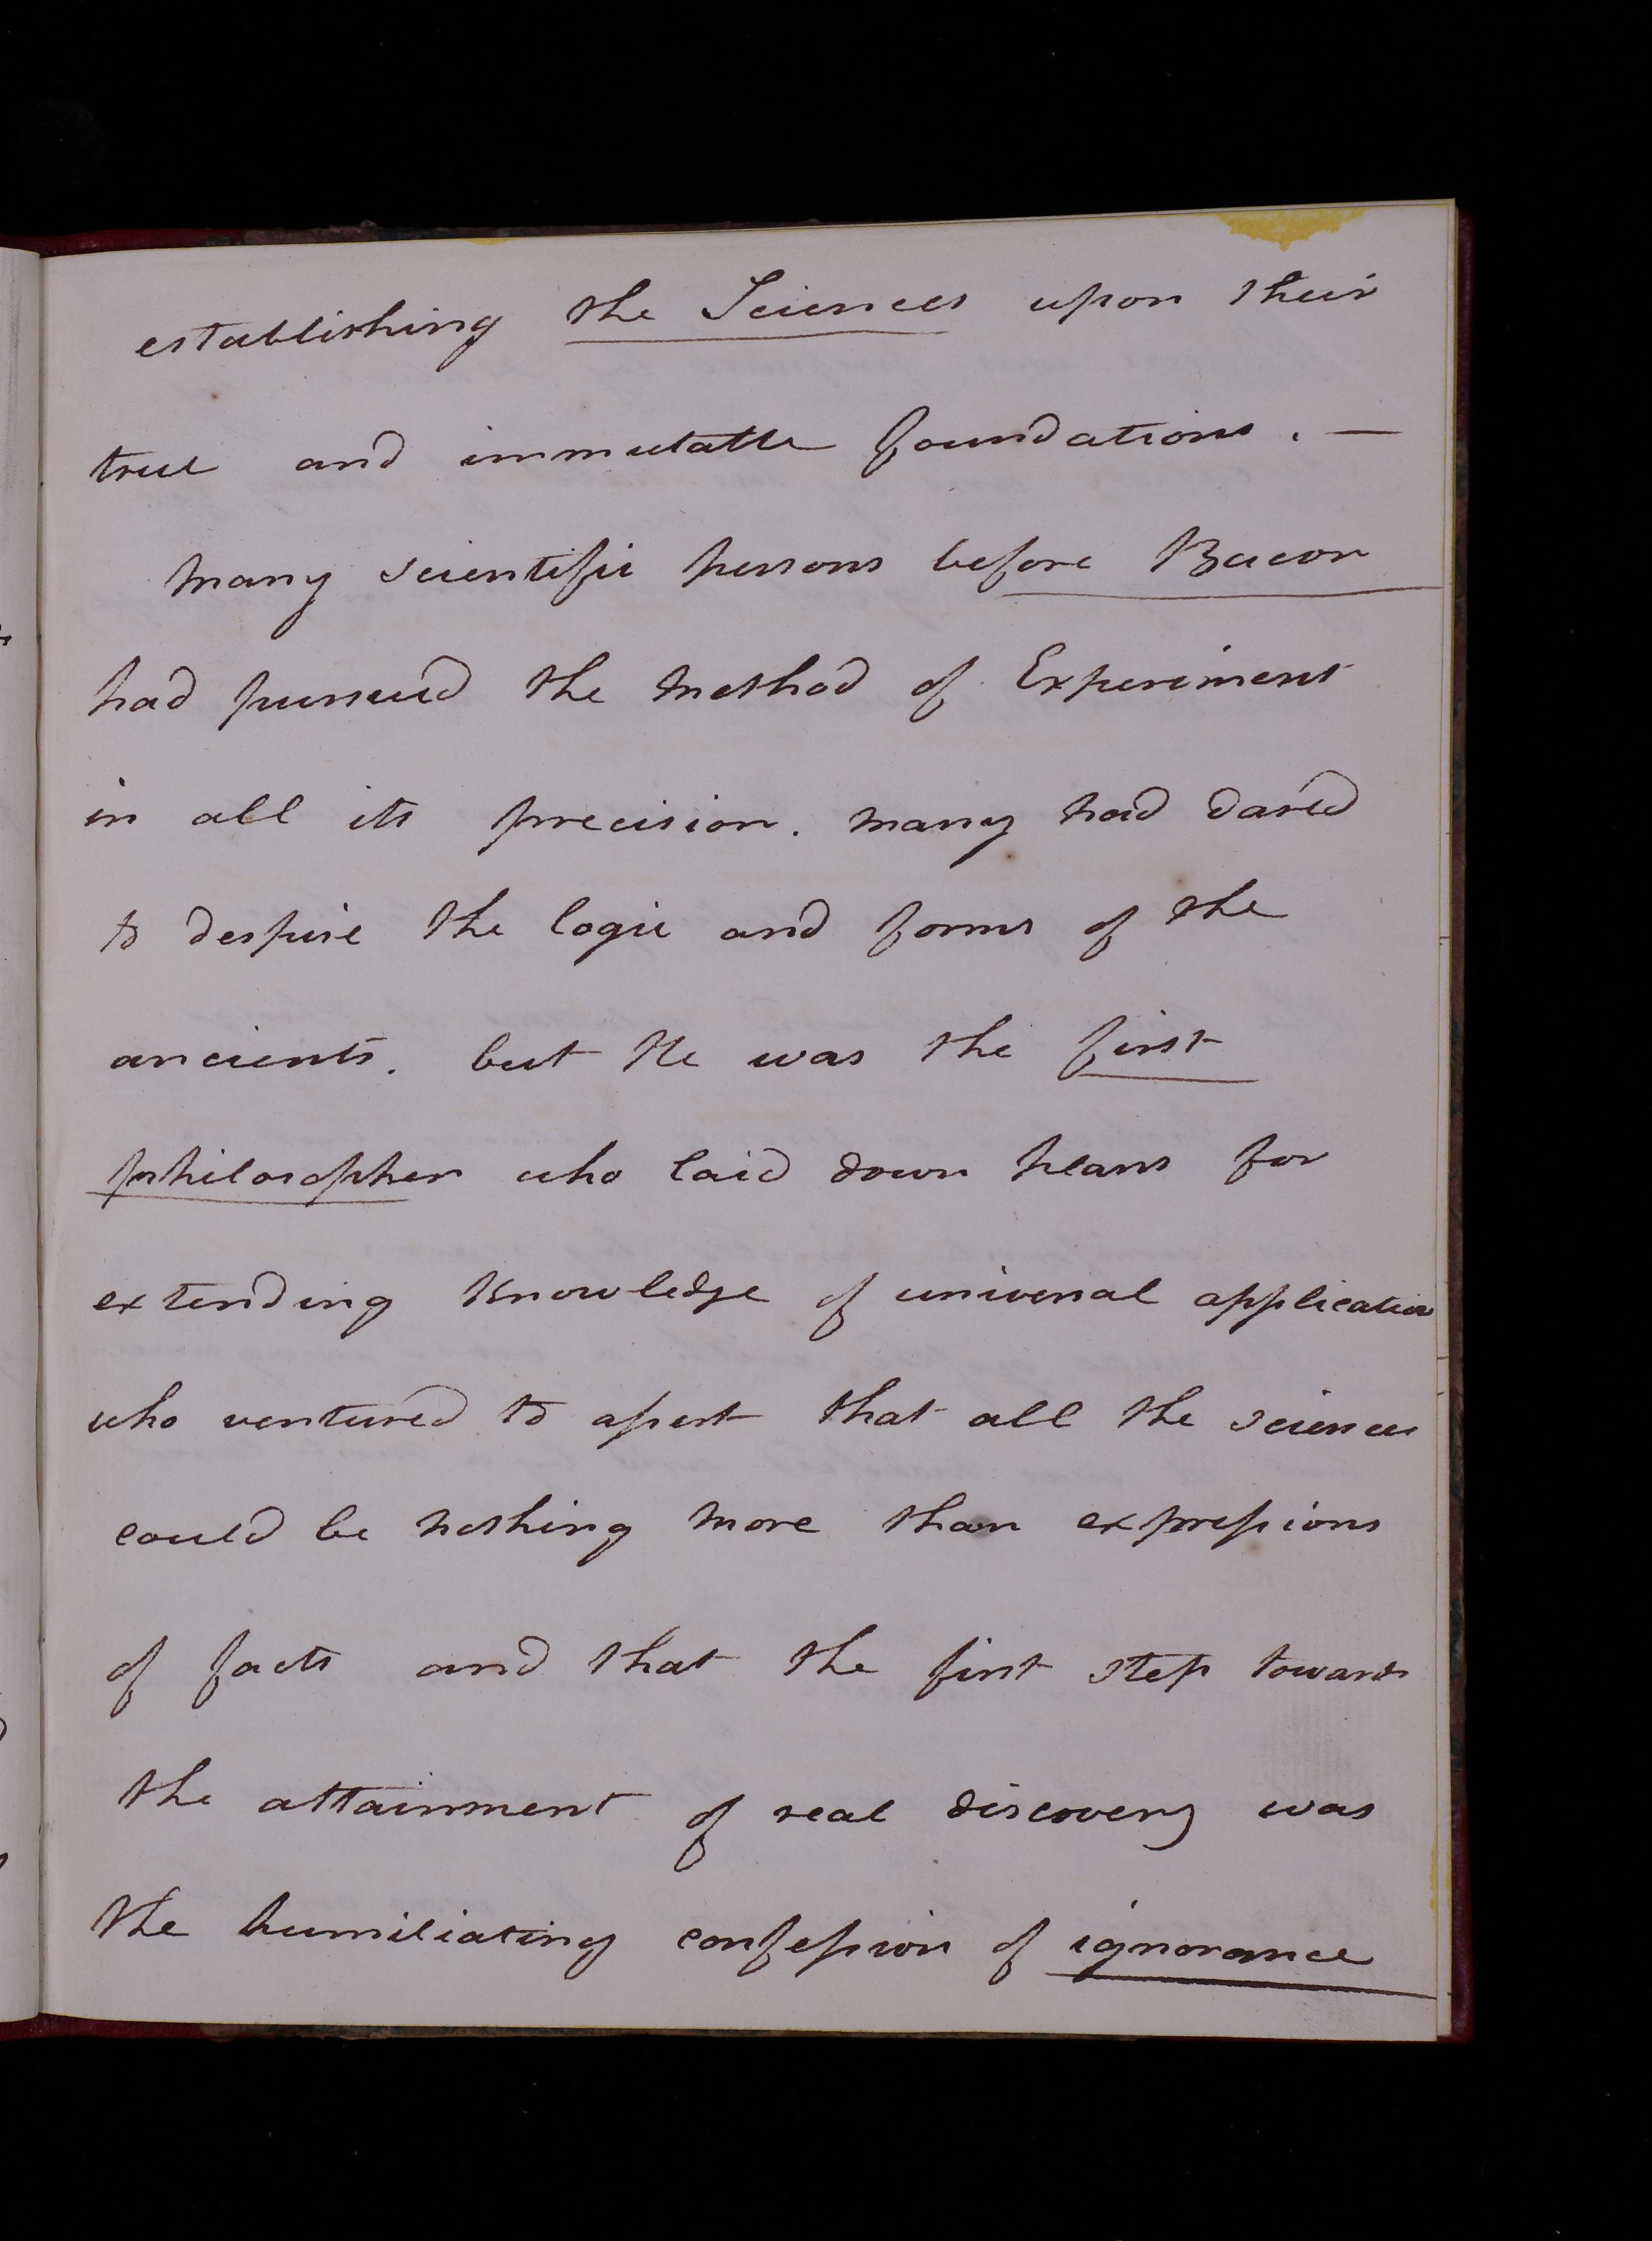 establishing the Sciences upon their
true and immutable foundations. —
Many scientific persons before Bacon
had pursued the method of Experiment
in all its precision. many had dared
to despise the logic and forms of the
ancients. but He was the first
philosopher who laid down plans for
extending Knowledge of universal application
who ventured to assert that all the sciences
could be nothing more than expressions
of facts and that the first step towards
the attainment of real discovery was
the humiliating confession of ignorance